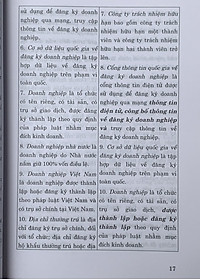 sử dụng để đăng ký doanh
nghiệp qua mạng, truy cập
thông tin về đăng ký doanh
nghiệp.
6. Cơ sở dữ liệu quốc gia về
đăng ký doanh nghiệp là tập
hợp dữ liệu về đăng ký
doanh nghiệp trên phạm vi
toàn quốc.
7. Doanh nghiệp là tổ chức
có tên riêng, có tài sản, có
trụ sở giao dịch, được đăng
ký thành lập theo quy định
của pháp luật nhằm mục
đích kinh doanh.
8. Doanh nghiệp nhà nước là
doanh nghiệp do Nhà nước
nắm giữ 100% vốn điều lệ.
9. Doanh nghiệp Việt Nam
là doanh nghiệp được thành
lập hoặc đăng ký thành lập
theo pháp luật Việt Nam và
có trụ sở chính tại Việt Nam.
10. Địa chỉ thường trú là địa
chỉ đăng ký trụ sở chính, đối
với tổ chức; địa chỉ đăng ký
hộ khẩu thường trú hoặc địa
7. Công ty trách nhiệm hữu
hạn bao gồm công ty trách
nhiệm hữu hạn một thành
viên và công ty trách nhiệm
hữu hạn hai thành viên trở
lên.
8. Cổng thông tin quốc gia về
đăng ký doanh nghiệp là
cổng thông tin điện tử được
sử dụng để đăng ký doanh
nghiệp qua mạng thông tin
điện tử, công bố thông tin
về đăng ký doanh nghiệp
và truy cập thông tin về
đăng ký doanh nghiệp.
9. Cơ sở dữ liệu quốc gia về
đăng ký doanh nghiệp là tập
hợp dữ liệu về đăng ký
doanh nghiệp trên phạm vi
toàn quốc.
10. Doanh nghiệp là tổ chức
có tên riêng, có tài sản, có
trụ sở giao dịch, được
thành lập hoặc đăng ký
thành lập theo quy định
của pháp luật nhằm mục
đích kinh doanh.
17